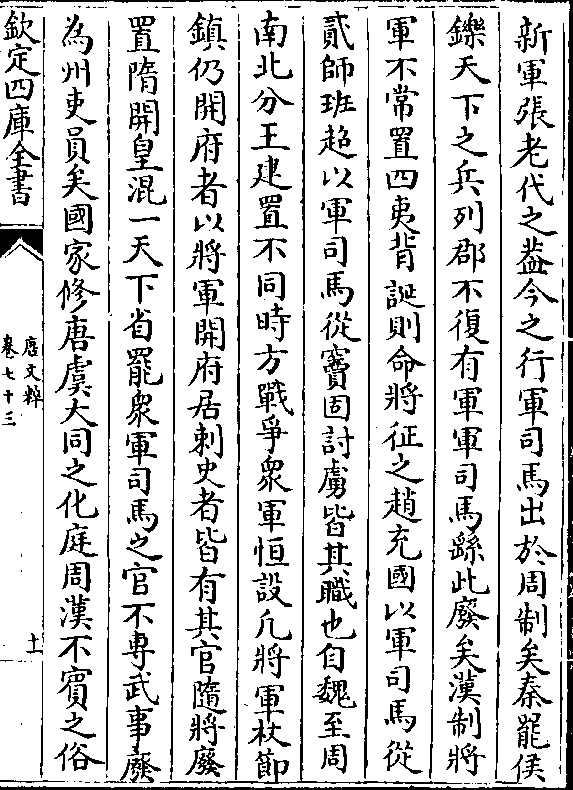 新軍張老代之葢今之行軍司馬出於周制矣秦罷侯
鑠天下之兵列郡不復有軍軍司馬繇此廢矣漢制將
軍不常置四夷背誕則命將征之趙充國以軍司馬從
貳師班超以軍司馬從竇固討虜皆其職也自魏至周
南北分王建置不同時方戰爭衆軍恒設凡將軍杖節
鎮仍開府者以將軍開府居刺史者皆有其官隨將廢
置隋開皇混一天下省罷衆軍司馬之官不專武事廢
為州吏員矣國家修唐虞大同之化庭周漢不賓之俗
欽定四庫全書
唐文粹
卷七十三
土